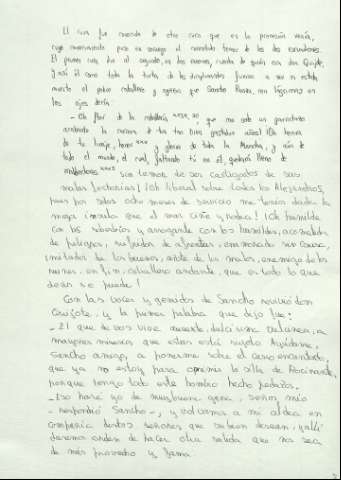 El cura fue conocido de otro cura que en la procesión venía,
cuyo conocimiento puso en sosiego el concebido temor de los dos escuadrones.
El primer cura dio al segundo, en dos razones, cuenta de quién era don Quijote,
y así él como toda la turba de los disciplinantes fueron a ver si estaba
muerto el pobre caballero y oyeron que Sancho Panza, con lágrimas en
los ojos decía:
- ¡Oh flor de la caballería, que con solo un garrotazo
acabaste la carrera de tus tan bien gastados años! ¡Oh honra
de tu linaje, honor y gloria de toda la Mancha, y aún de
todo el mundo, el cual, faltando tú en él, quedará lleno de
malhechores sin temor de ser castigados de sus
malas fechorías! ¡Oh liberal sobre todos los Alejandros,
pues por solos ocho meses de servicio me tenías dada la
mejor ínsula que el mar ciñe y rodea! ¡Oh humilde
con los soberbios y arrogante con los humildes, acometedor
de peligros, sufridor de afrentas, enamorado sin causa,
imitador de los buenos, azote de los malos, enemigo de los
ruines, en fin, caballero andante, que es todo lo que
decir se puede!
Con las voces y gemidos de Sancho revivió don
Quijote, y la primer palabra que dijo fue:
- El que de vos vive ausente, dulcísima Dulcinea, a
mayores miserias que estas está sujeto. Ayúdame,
Sancho amigo, a ponerme sobre el carro encantado,
que ya no estoy para oprimir la silla de Rocinante,
porque tengo todo este hombro hecho pedazos.
- Eso haré yo de muy buena gana, señor mío
- respondió Sancho -, y volvamos a mi aldea en
compañía destos señores que su bien desean, y allí
daremos orden de hacer otra salida que nos sea
de más provecho y fama.